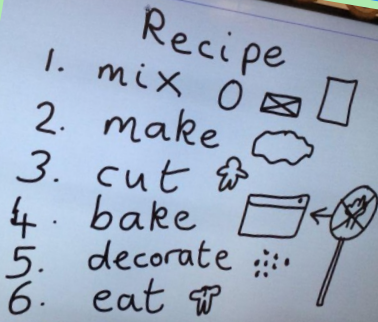 Recipe
1. mix
2. make
3. cut
4. bake
5. decorate
6. eat